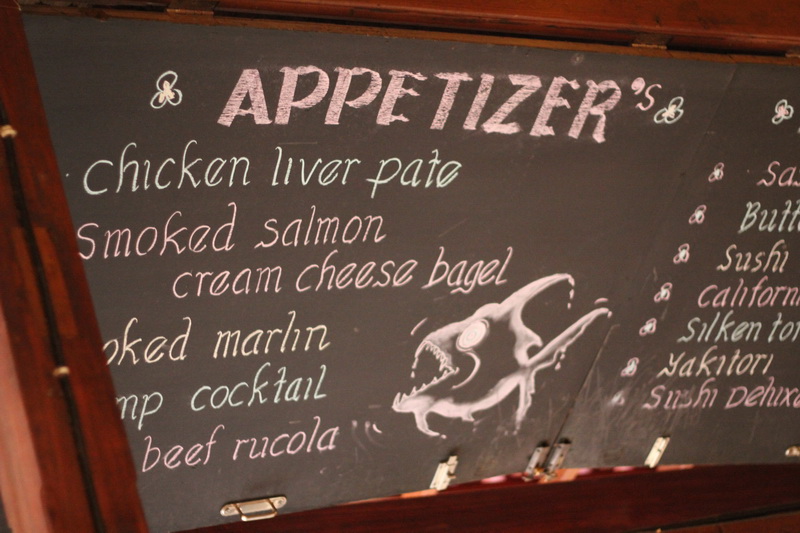 APPETIZER's
chicken liver pate
smoked salmon
cream cheese bagel
oked marlin
mp cocktail
beef rucola
Sas
Butt
Sushi
Californ
Silken tor
Yakitori
Sushi Deluxe